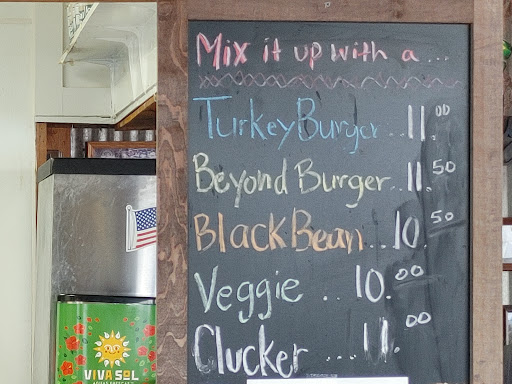 Mix it up with a...
Turkey Burger..11.00
Beyond Burger..11.50
Black Bean...10.50
Veggie ..10.00
Clucker ....11.00
VIVA SOL